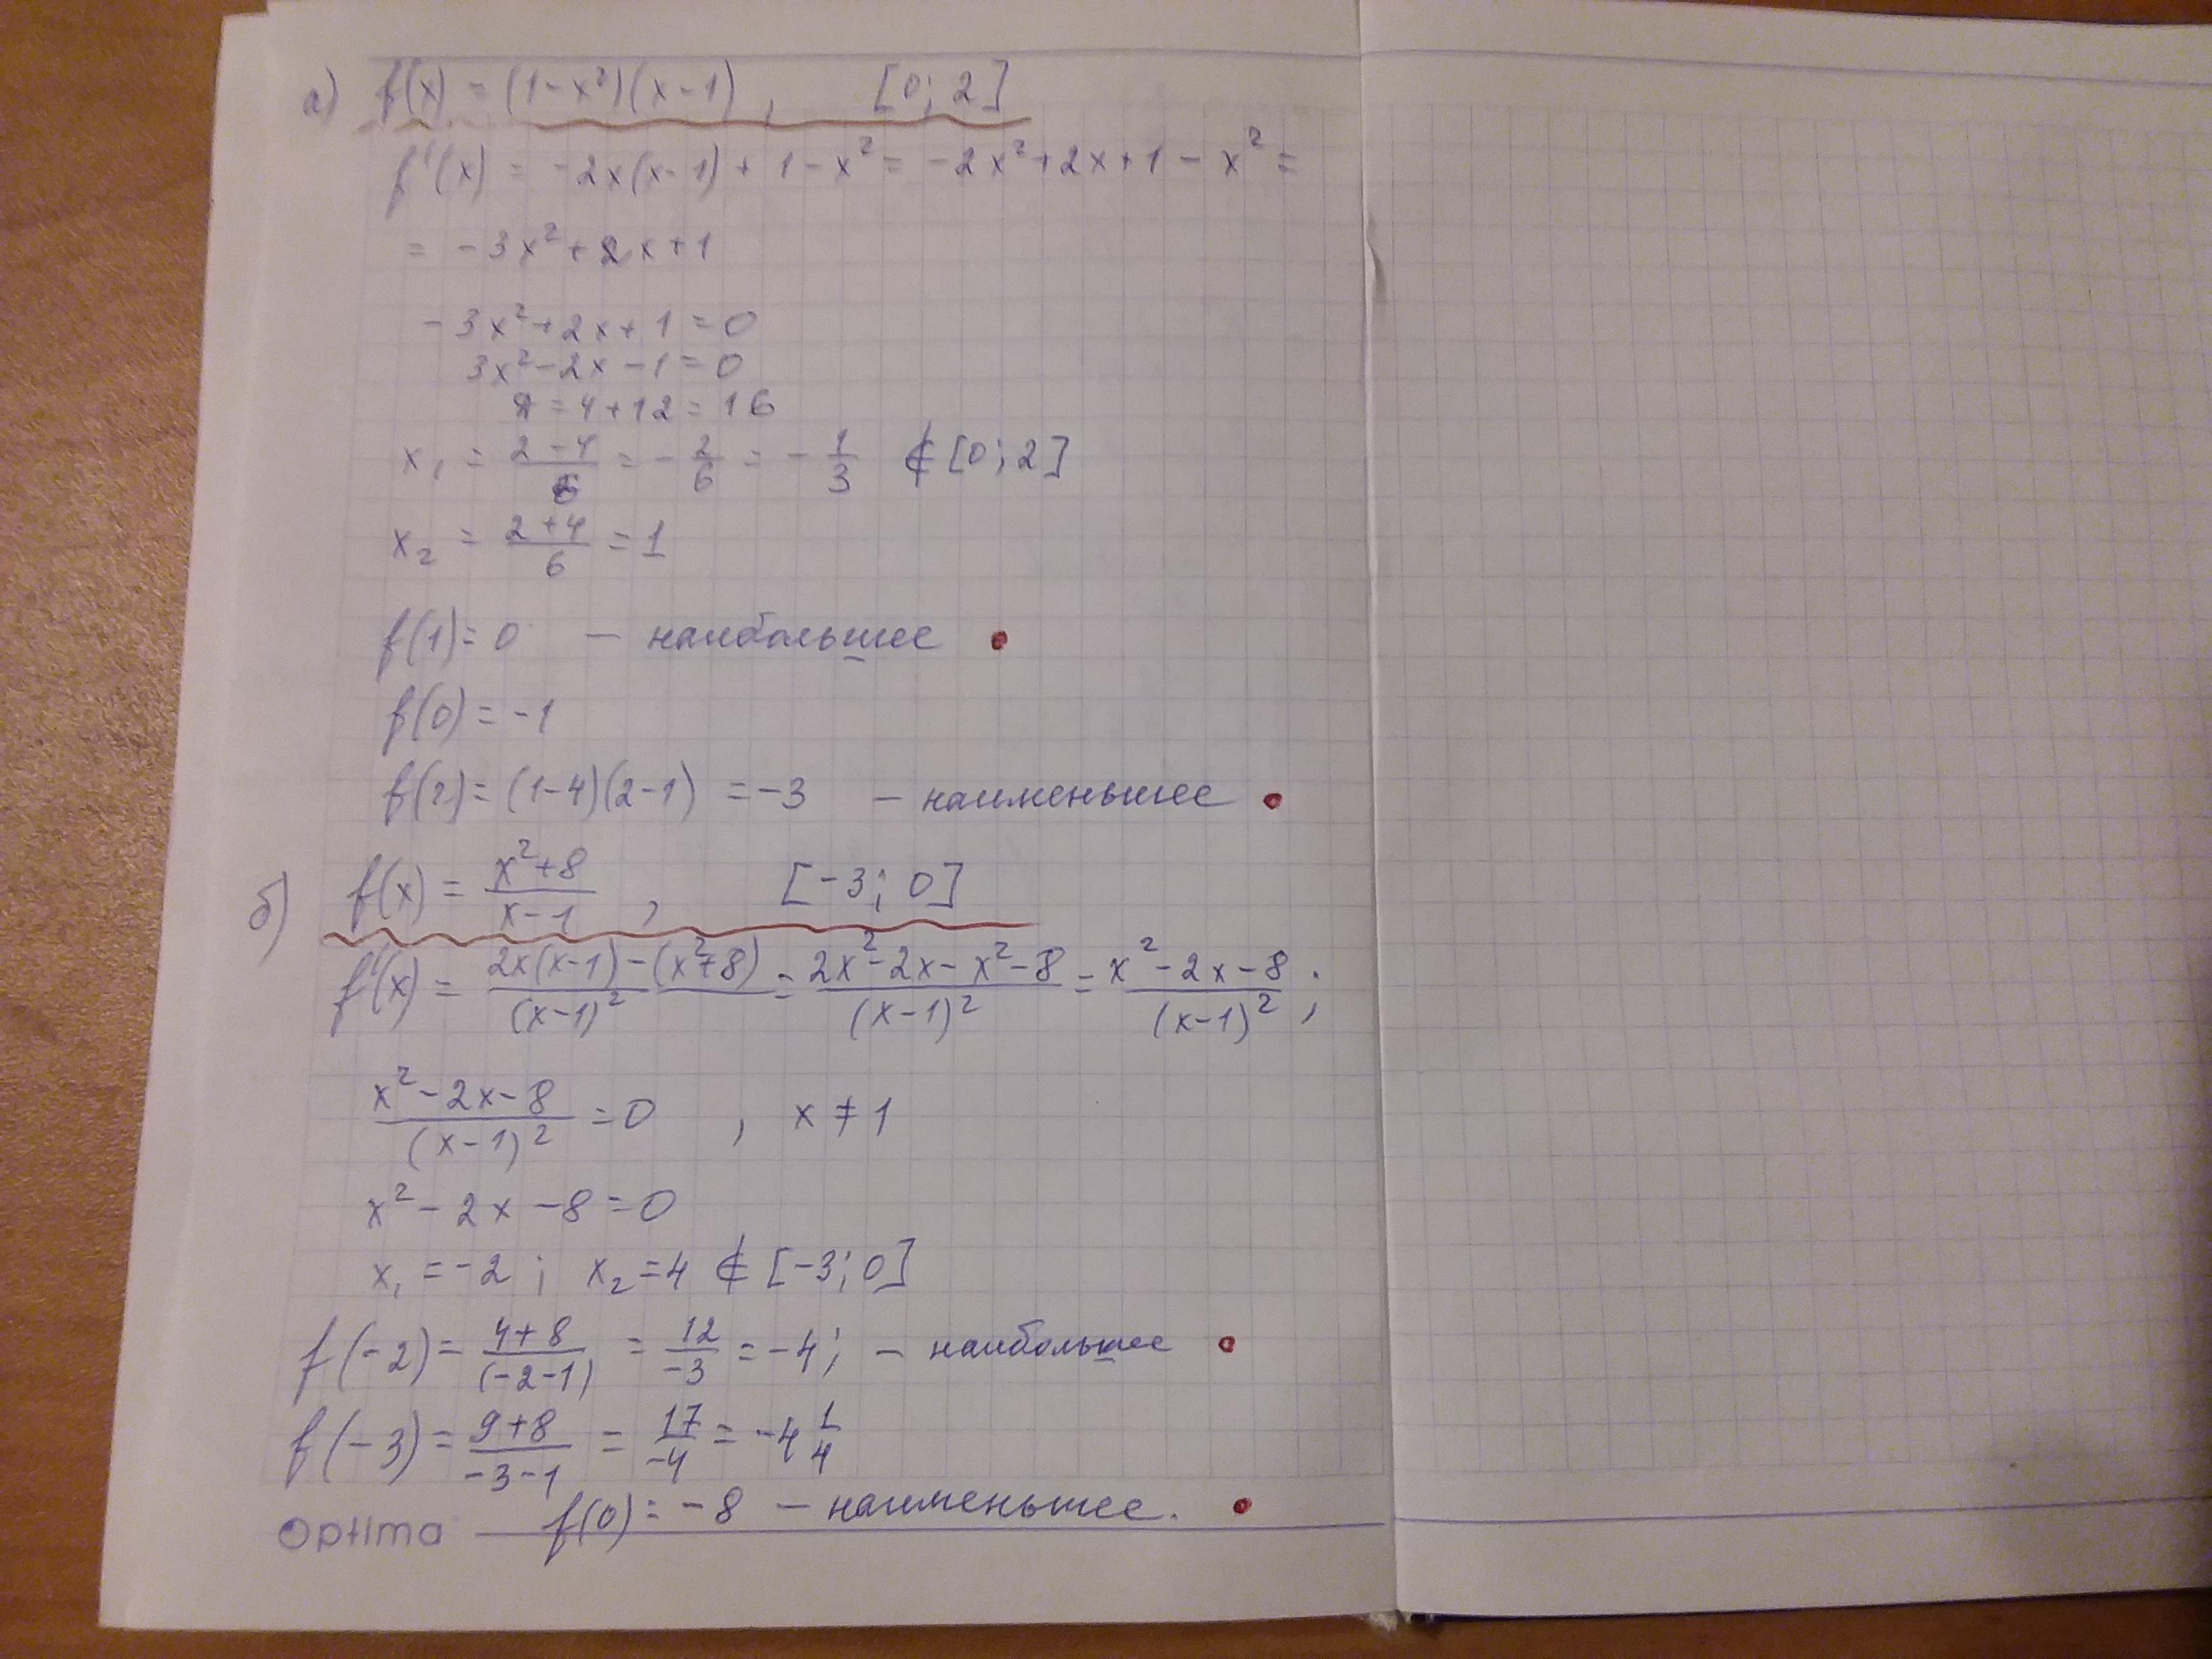 а) f(x) = (1-x²)(x-1), [0; 2]
f'(x) = -2x(x-1) + 1-x² = -2x²+2x+1-x² =
= -3x²+2x+1
-3x²+2x+1=0
3x²-2x-1=0
Д=4+12=16
x₁ = (2-4)/6 = -2/6 = -1/3 ∉ [0; 2]
x₂ = (2+4)/6 = 1
f(1)=0 - наибольшее
f(0)=-1
f(2)=(1-4)(2-1) =-3 - наименьшее
б) f(x) = (x²+8)/(x-1), [-3; 0]
f'(x) = (2x(x-1)-(x²+8))/(x-1)² = (2x²-2x-x²-8)/(x-1)² = (x²-2x-8)/(x-1)² ;
(x²-2x-8)/(x-1)² =0 , x≠1
x²-2x-8=0
x₁=-2; x₂=4 ∉ [-3; 0]
f(-2)= (4+8)/(-2-1) = 12/-3 =-4; - наибольшее
f(-3)= (9+8)/(-3-1) = 17/-4 = -4 1/4
f(0)=-8 - наименьшее.
Optima